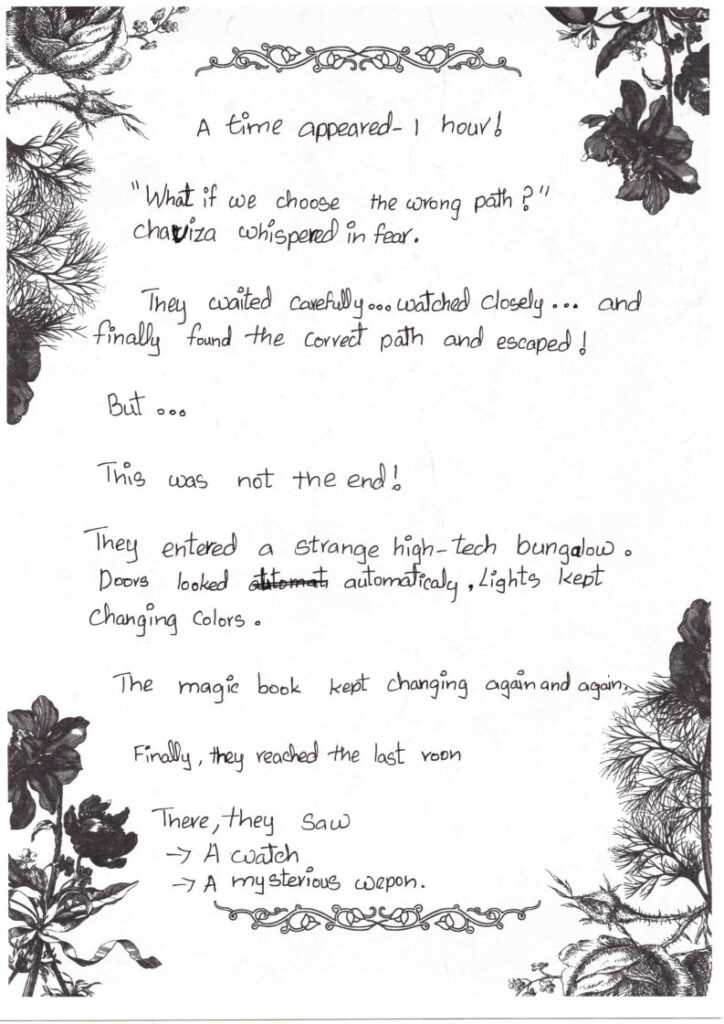 A time appeared- 1 hour!
"What if we choose the wrong path?"
chaviza whispered in fear.
They waited carefully...watched closely... and
finally found the correct path and escaped!
But ...
This was not the end!
They entered a strange high-tech bungalow.
Doors looked automaticaly, Lights kept
changing colors.
The magic book kept changing again and again.
Finally, they reached the last roon
There, they saw
→ A watch
→ A mysterious wepon.